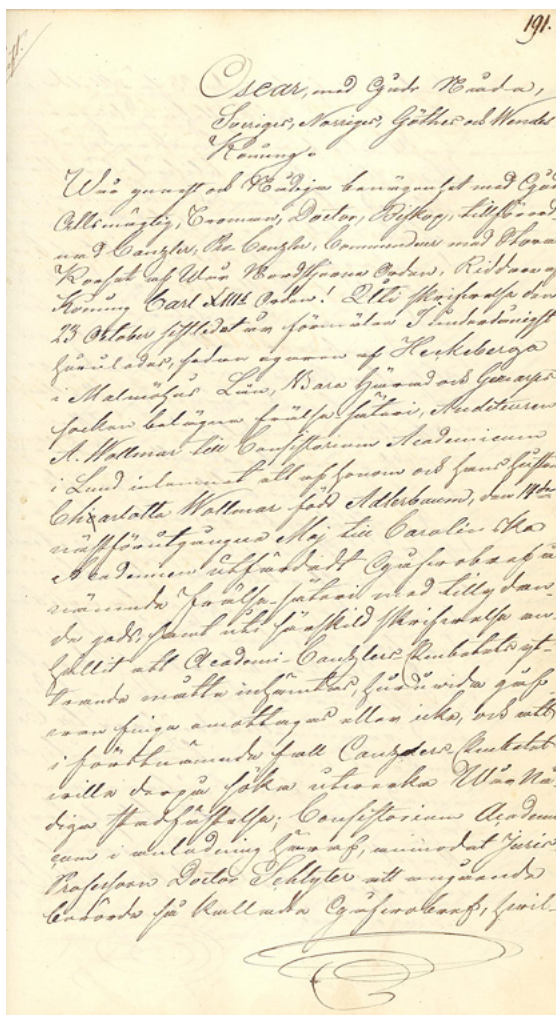 191.
Oscar, med Guds Nåde,
Sveriges, Norriges, Göthes och Wendes
Konung.
Wår gunst och Nådiga benägenhet med Gud
Allsmägtig, Troman, Doctor, Biskop, tillförord
nad Canzler, Pro Canzler, Commendeur med Stora
Korset af Wår Nordstjerne Orden, Riddare af
Konung Carl XIIIs Orden! Uti skrifvelse den
23 October sistledet år förmälen I underdånigst
hurusledes, sedan egaren af Heckeberga
i Malmöhus Län, Bara Härad och Genarps
socken belägna frälse säteri, Auditeuren
A. Wollmar till Consistorium Academicum
i Lund inlemnat ett af honom och hans hustru
Charlotta Wollmar född Adlerbaum, den 14de
nästförutgångna Maj till Carolinska
Academien utfärdadt Gåfvobref å
nämnde frälse-säteri med tillydan-
de gods samt uti särskild skrifvelse an-
hållit att Academi-Canzlers-Embetets yt-
trande måtte inhämtas, huruvida gåf
van finge emottagas eller icke, och att
i förstnämnde fall Canzlers Embetet
wille derpå söka utwerka Wår Nå-
diga stadfästelse; Consistorium Academi
cum i anledning häraf, anmodat Juris
Professoren Doctor Schlyter att angående
berörde så kallade Gåfvobref, hvil-